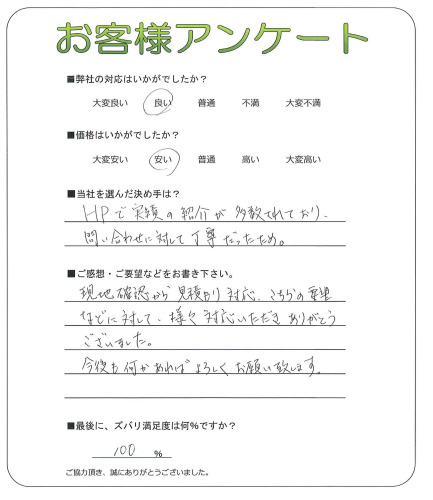 お客様アンケート
■弊社の対応はいかがでしたか?
大変良い 良い 普通 不満 大変不満
■価格はいかがでしたか?
大変安い 安い 普通 高い 大変高い
■当社を選んだ決め手は?
HPで実績の紹介が多数されており、
問い合わせに対して丁寧だったため。
■ご感想・ご要望などをお書き下さい。
現地確認から見積もり対応、こちらの要望
などに対して、様々対応いただきありがとう
ございました。
今後も何かあればよろしくお願い致します。
■最後に、ズバリ満足度は何%ですか?
100 %
ご協力頂き、誠にありがとうございました。